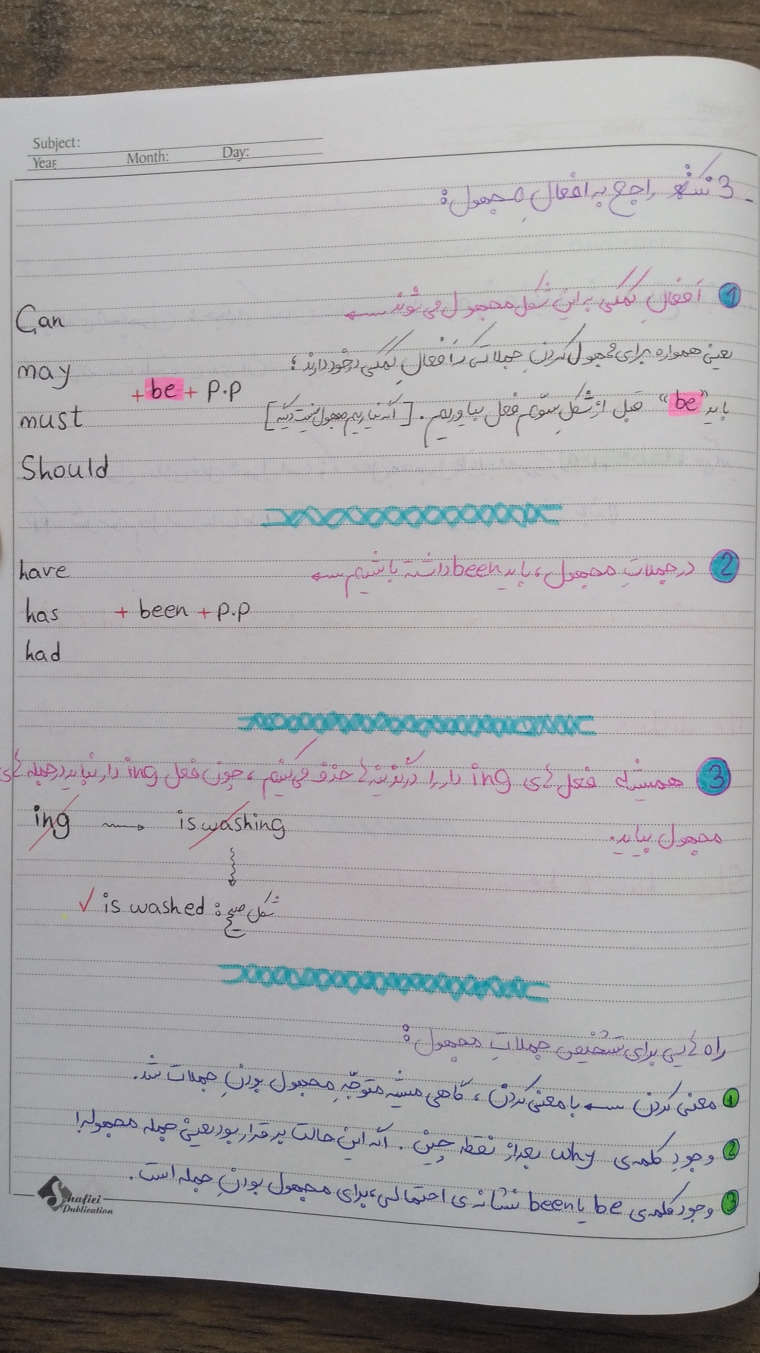 Subject:
Year Month: Day:
3 نکته راجع به افعالِ مجهول:
1 اَفعالِ کمکی به این شکل مجهول می‌شوند ←
یعنی همواره برای مجهول کردنِ جملاتی که اَفعالِ کمکی در خود دارند،
باید "be" قبل از شکلِ سوّم فعل بیاوریم. [اگه نیاریم مجهول نیست دیگه]
Can
may
must
Should
+ be + p.p
2 در جملاتِ مجهول، باید been داشته باشیم ←
have
has + been + p.p
had
3 همیشه فعل های ing دار را در گزینه ها حذف می‌کنیم، چون فعل ing دار نباید در جمله های
مجهول بیاید.
ing → is washing
✓ is washed : شکل صحیح
راه هایی برای تشخیصِ جملاتِ مجهول:
1 معنی کردن ← با معنی کردن، گاهی میشه متوجّهِ مجهول بودنِ جملات شد.
2 وجودِ کلمه‌ی why بعد از نقطه چین. اگه این حالت برقرار بود یعنی جمله مجهوله!
3 وجود کلمه‌ی be یا been نشانه ی احتمالی، برای مجهول بودنِ جمله است.
Shafiei
Publication